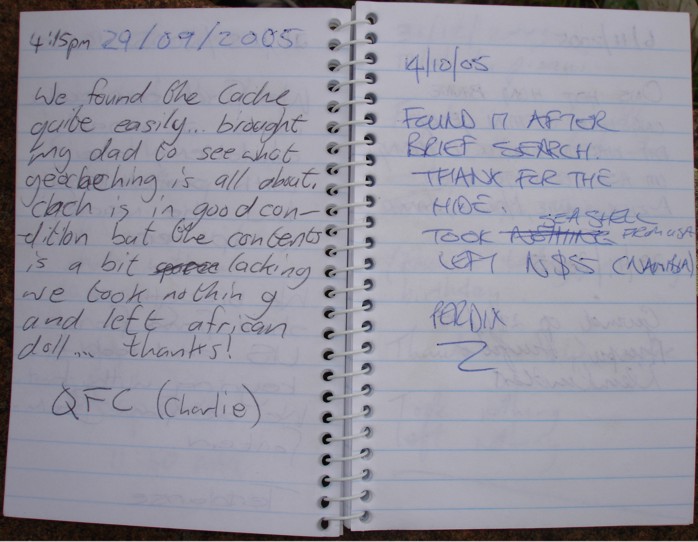 4:15pm 29/09/2005
We found the Cache
quite easily... brought
my dad to see what
geocaching is all about.
Cach is in good con-
-dition but the contents
is a bit lacking
we took nothing
and left african
doll... thanks!
QFC (Charlie)
4/10/05
FOUND IT AFTER
BRIEF SEARCH.
THANK FOR THE
HIDE.
SEA SHELL
TOOK NOTHING FROM USA
LEFT N$5 (NAMIBIA)
PERDIX